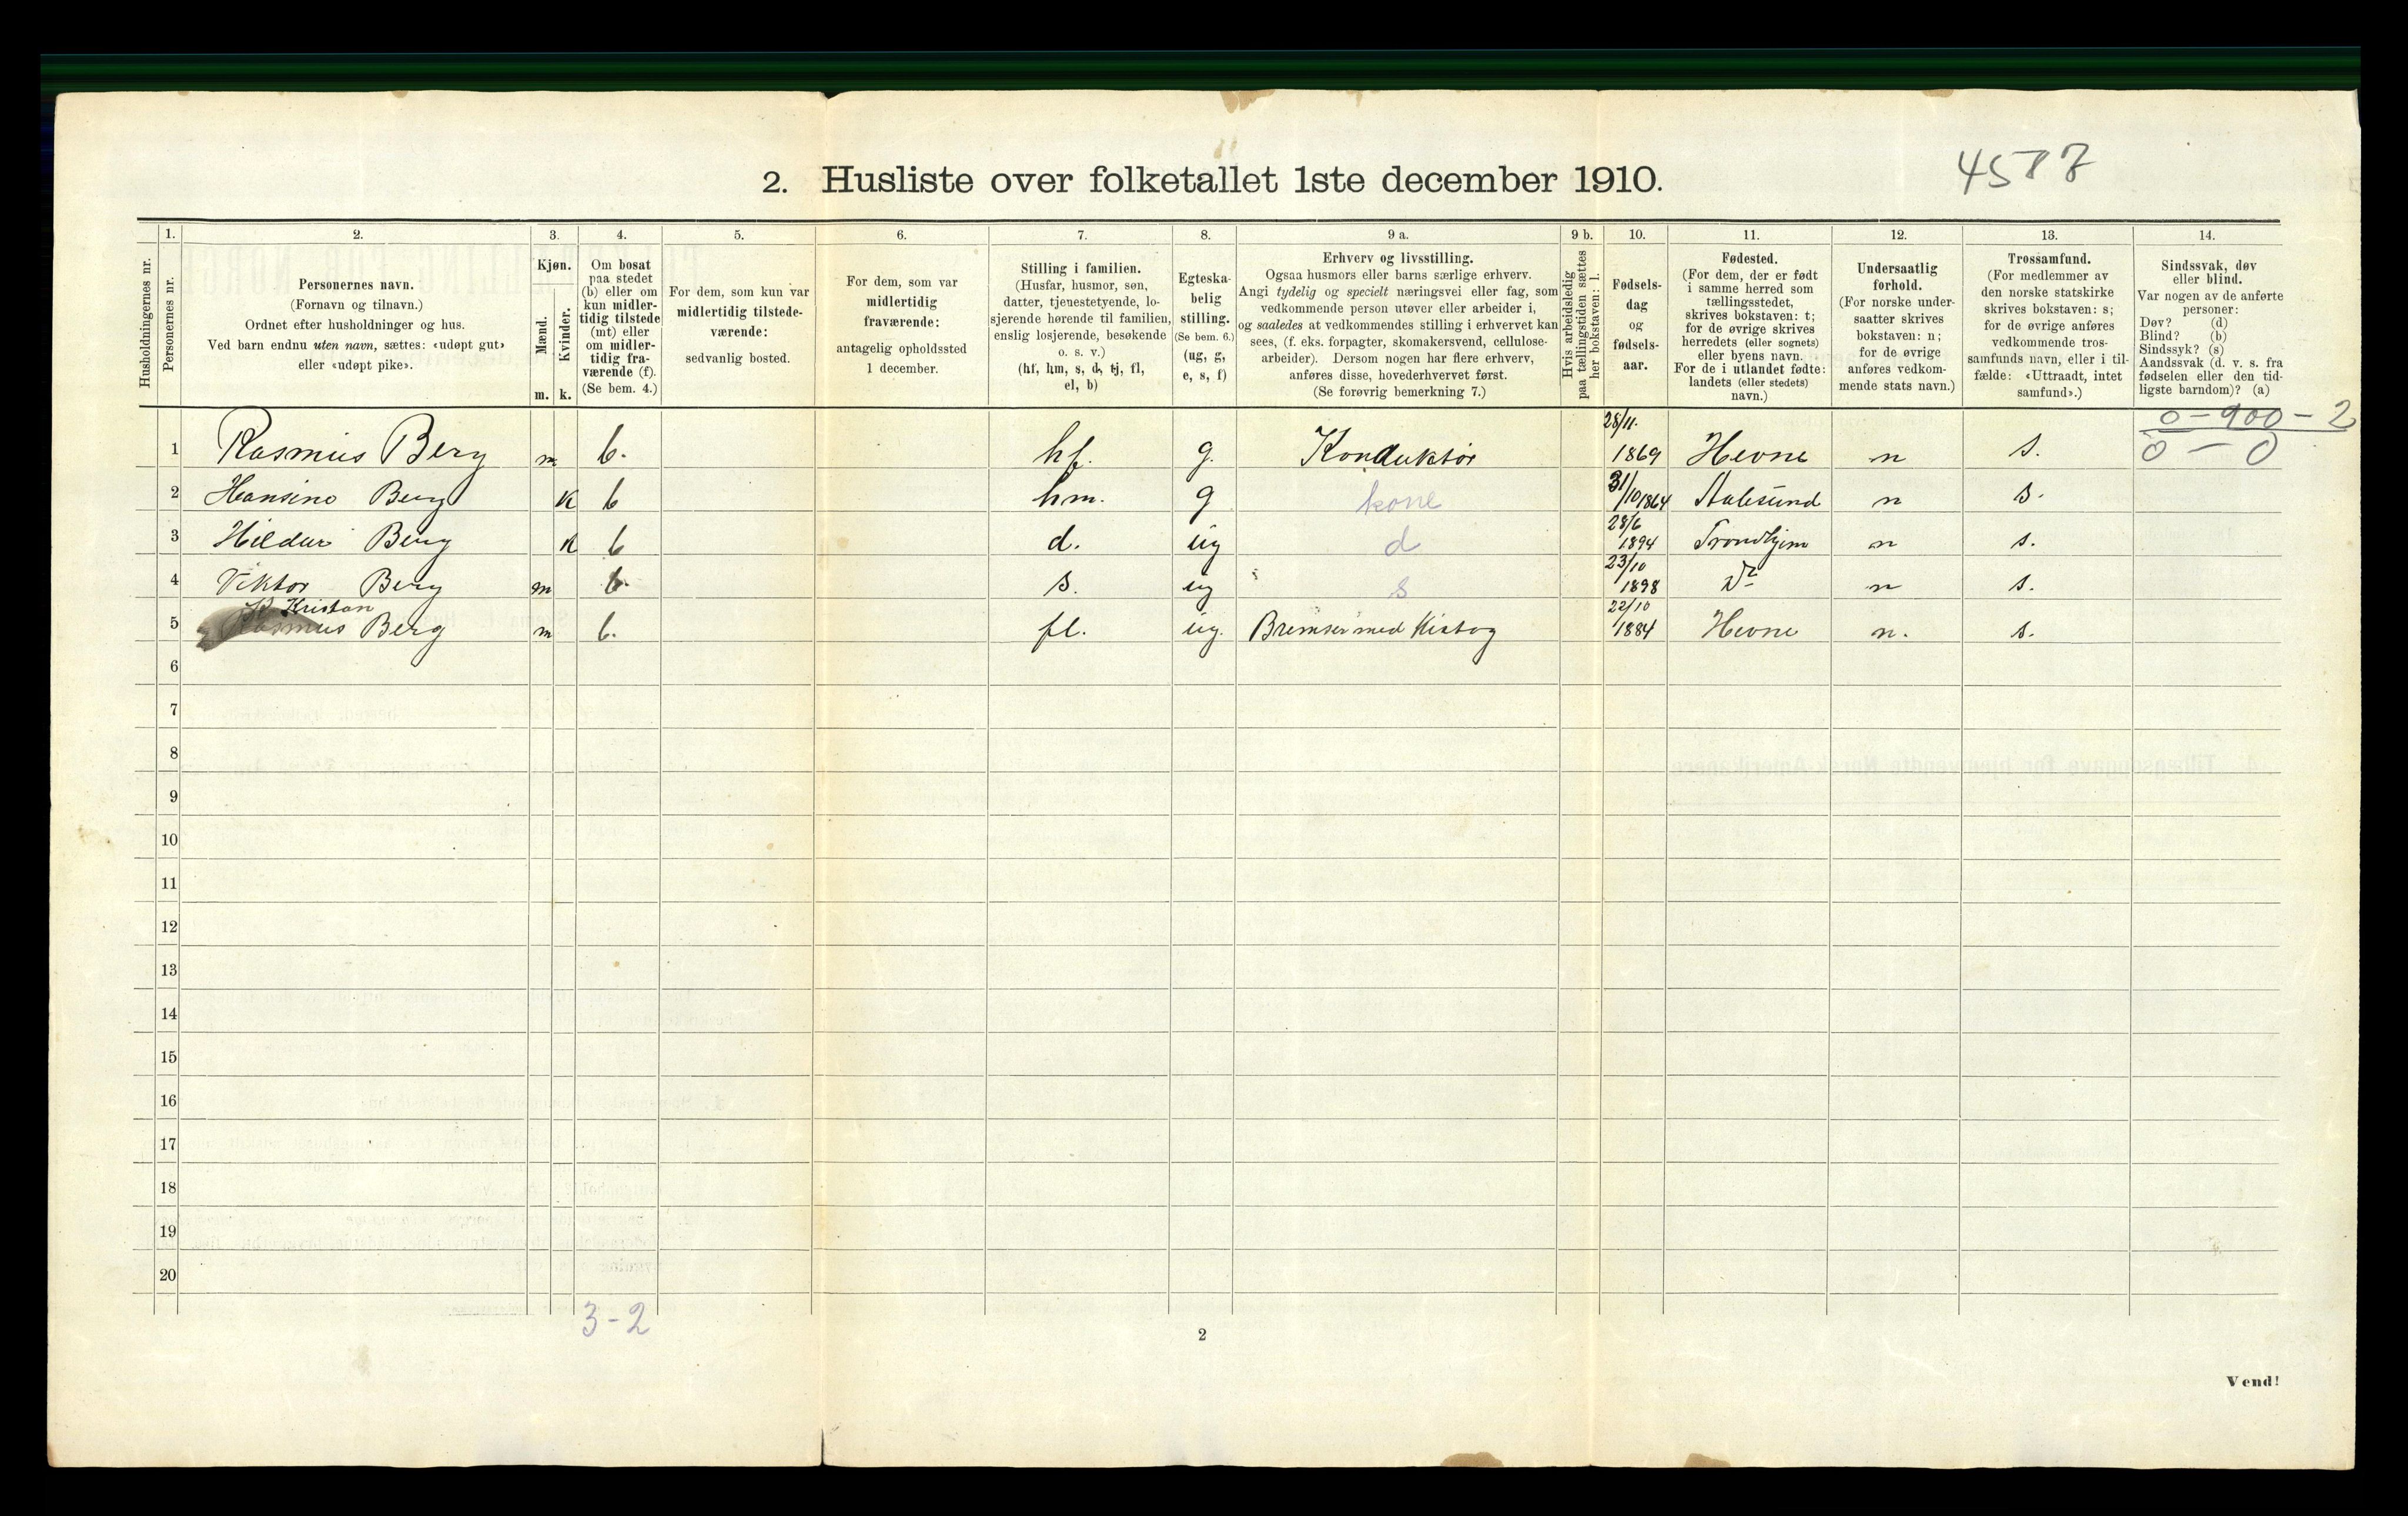 2. Husliste over folketallet 1ste december 1910.
4587
Husholdningernes nr.
1.
Personernes nr.
2.
Personernes navn.
(Fornavn og tilnavn.)
Ordnet efter husholdninger og hus.
Ved barn endnu uten navn, sættes: «udøpt gut»
eller «udøpt pike».
3.
Kjøn.
Mænd.
Kvinder.
m. k.
4.
Om bosat
paa stedet
(b) eller om
kun midler-
tidig tilstede
(mt) eller
om midler-
tidig fra-
værende (f).
(Se bem. 4.)
5.
For dem, som kun var
midlertidig tilstede-
værende:
sedvanlig bosted.
6.
For dem, som var
midlertidig
fraværende:
antagelig opholdssted
1 december.
7.
Stilling i familien.
(Husfar, husmor, søn,
datter, tjenestetyende, lo-
sjerende hørende til familien,
enslig losjerende, besøkende
o. s. v.)
(hf, hm, s, d, tj, fl,
el, b)
8.
Egteska-
belig
stilling.
(Se bem. 6.)
(ug, g,
e, s, f)
9 a.
Erhverv og livsstilling.
Ogsaa husmors eller barns særlige erhverv.
Angi tydelig og specielt næringsvei eller fag, som
vedkommende person utøver eller arbeider i,
og saaledes at vedkommendes stilling i erhvervet kan
sees, (f. eks. forpagter, skomakersvend, cellulose-
arbeider). Dersom nogen har flere erhverv,
anføres disse, hovederhvervet først.
(Se forøvrig bemerkning 7.)
9 b.
Hvis arbeidsledig
paa tællingstiden sættes
her bokstaven: l.
10.
Fødsels-
dag
og
fødsels-
aar.
11.
Fødested.
(For dem, der er født
i samme herred som
tællingsstedet,
skrives bokstaven: t;
for de øvrige skrives
herredets (eller sognets)
eller byens navn.
For de i utlandet fødte:
landets (eller stedets)
navn.)
12.
Undersaatlig
forhold.
(For norske under-
saatter skrives
bokstaven: n;
for de øvrige
anføres vedkom-
mende stats navn.)
13.
Trossamfund.
(For medlemmer av
den norske statskirke
skrives bokstaven: s;
for de øvrige anføres
vedkommende tros-
samfunds navn, eller i til-
fælde: «Uttraadt, intet
samfund».)
14.
Sindssvak, døv
eller blind.
Var nogen av de anførte
personer:
Døv? (d)
Blind? (b)
Sindssyk? (s)
Aandssvak (d. v. s. fra
fødselen eller den tid-
ligste barndom)? (a)
0 - 900 - 2
0 - 0
1 Rasmus Berg m b. hf. g. Konduktør 28/11. 1869 Hevne n s.
2 Hansine Berg k b hm. g kone 31/10 1864 Aalesund n s.
3 Hildur Berg k b d. ug d 28/6 1894 Trondhjem n s.
4 Viktor Berg m b. s. ug s 23/10 1898 Do n s.
Kristan
5 Rasmus Berg m b. fl. ug. Bremser med Kistog 22/10 1884 Hevne n. s.
6
7
8
9
10
11
12
13
14
15
16
17
18
19
20
3-2
2
Vend!